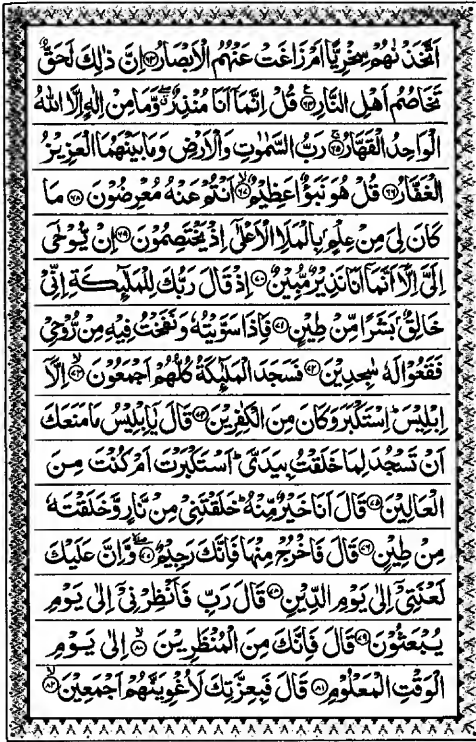 اَتَّخَذْنٰهُمْ سِخْرِيًّا اَمْ زَاغَتْ عَنْهُمُ الْاَبْصَارُ ﴿۶۳﴾ اِنَّ ذٰلِكَ لَحَقٌّ
تَخَاصُمُ اَهْلِ النَّارِ ﴿۶۴﴾ قُلْ اِنَّمَاۤ اَنَا مُنْذِرٌ ۖۗ وَّمَا مِنْ اِلٰهٍ اِلَّا اللّٰهُ
الْوَاحِدُ الْقَهَّارُ ﴿۶۵﴾ رَبُّ السَّمٰوٰتِ وَالْاَرْضِ وَمَا بَيْنَهُمَا الْعَزِيْزُ
الْغَفَّارُ ﴿۶۶﴾ قُلْ هُوَ نَبَؤٌا عَظِيْمٌ ﴿۶۷﴾ اَنْتُمْ عَنْهُ مُعْرِضُوْنَ ﴿۶۸﴾ مَا
كَانَ لِيَ مِنْ عِلْمٍۭ بِالْمَلَاِ الْاَعْلٰۤى اِذْ يَخْتَصِمُوْنَ ﴿۶۹﴾ اِنْ يُّوْحٰۤى
اِلَيَّ اِلَّاۤ اَنَّمَاۤ اَنَا نَذِيْرٌ مُّبِيْنٌ ﴿۷۰﴾ اِذْ قَالَ رَبُّكَ لِلْمَلٰٓئِكَةِ اِنِّيْ
خَالِقٌۢ بَشَرًا مِّنْ طِيْنٍ ﴿۷۱﴾ فَاِذَا سَوَّيْتُهٗ وَنَفَخْتُ فِيْهِ مِنْ رُّوْحِيْ
فَقَعُوْا لَهٗ سٰجِدِيْنَ ﴿۷۲﴾ فَسَجَدَ الْمَلٰٓئِكَةُ كُلُّهُمْ اَجْمَعُوْنَ ﴿۷۳﴾ اِلَّاۤ
اِبْلِيْسَ ؕ اِسْتَكْبَرَ وَكَانَ مِنَ الْكٰفِرِيْنَ ﴿۷۴﴾ قَالَ يٰۤاِبْلِيْسُ مَا مَنَعَكَ
اَنْ تَسْجُدَ لِمَا خَلَقْتُ بِيَدَيَّ ؕ اَسْتَكْبَرْتَ اَمْ كُنْتَ مِنَ
الْعَالِيْنَ ﴿۷۵﴾ قَالَ اَنَا خَيْرٌ مِّنْهُ ؕ خَلَقْتَنِيْ مِنْ نَّارٍ وَّخَلَقْتَهٗ
مِنْ طِيْنٍ ﴿۷۶﴾ قَالَ فَاخْرُجْ مِنْهَا فَاِنَّكَ رَجِيْمٌ ﴿۷۷﴾ وَّاِنَّ عَلَيْكَ
لَعْنَتِيْۤ اِلٰى يَوْمِ الدِّيْنِ ﴿۷۸﴾ قَالَ رَبِّ فَاَنْظِرْنِيْۤ اِلٰى يَوْمِ
يُبْعَثُوْنَ ﴿۷۹﴾ قَالَ فَاِنَّكَ مِنَ الْمُنْظَرِيْنَ ﴿۸۰﴾ اِلٰى يَوْمِ
الْوَقْتِ الْمَعْلُوْمِ ﴿۸۱﴾ قَالَ فَبِعِزَّتِكَ لَاُغْوِيَنَّهُمْ اَجْمَعِيْنَ ﴿۸۲﴾